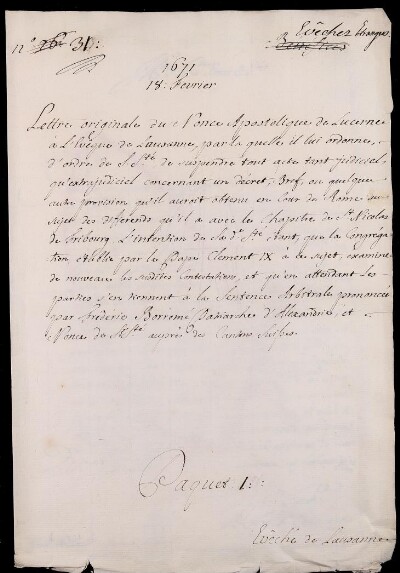 n.° 26. 31:
Evêchez Etrangers
1671
18. Fevrier
Lettre originale du Nonce Apostolique de Lucerne
à L'Evêque de Lausanne, par la quelle, il lui ordonne,
d'ordre de S. Sté. de suspendre tout acte tant judiciel,
qu'extrajudiciel concernant un Décret, Bref, ou quelque
autre provision qu'il auroit obtenu en Cour de Rome au
sujet des differends qu'il a avec le Chapitre de St. Nicolas
de Fribourg. L'intention de Sa de. Sté. étant, que la Congréga-
tion établie par le Pape Clement IX à ce sujet, examine
de nouveau les susdites Contestations, et qu'en attendant Les
parties s'en tiennent à la Sentence Arbitrale prononcée
par Fréderic Borromé Patriarche d'Alexandrie, et
Nonce du St. Sté. auprès des Cantons Suisses.
Paquet 1:
Evêché de Lausanne